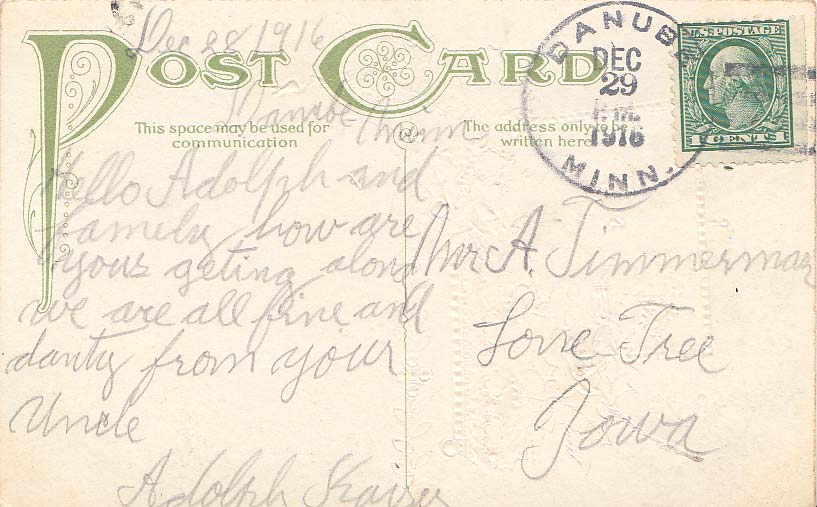 Dec 28 1916
POST CARD
Danube Minn
This space may be used for
communication
The address only to be
written here
DANUBE
DEC
29
1916
MINN.
U.S. POSTAGE
1 CENTS 1
Hello Adolph and
family how are
yous geting along
we are all fine and
danty from your
Uncle
Adolph
Mr A. Timmerman
Lone Tree
Iowa